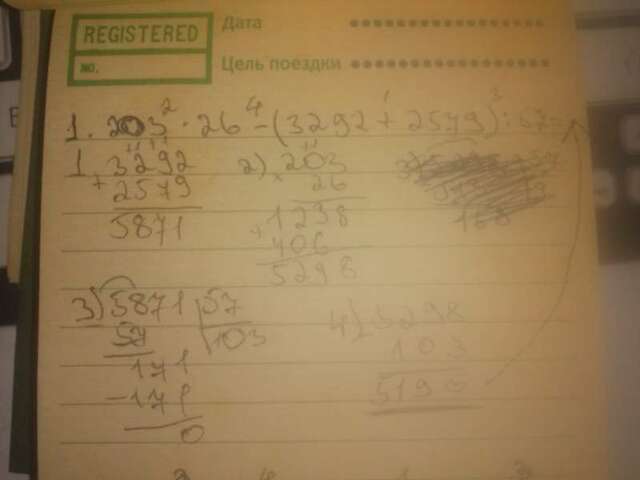 REGISTERED
№.
Дата
Цель поездки
1. 203 · 26 - (3292 + 2579) : 57
2 4 1 3
1. 3292
+ 2579
5871
2) 203
× 26
1238
+ 406
5298
3) 5871 57
57 103
171
- 171
0
4) 5298
103